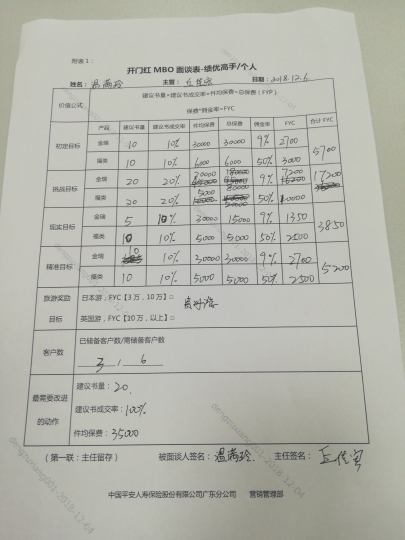 附表1:
开门红 MBO 面谈表-绩优高手/个人
姓名: 温菊玲 主管: 日期: 2018.12.6
价值公式 建议书量*建议书成交率*件均保费=总保费(FYP)
保费*佣金率=FYC
产品 建议书量 建议书成交率 件均保费 总保费 佣金率 FYC 合计 FYC
初定目标 金瑞 10 10% 30000 30000 9% 2700 5700
福类 10 10% 6000 6000 50% 3000
挑战目标 金瑞 20 20% 20000 80000 9% 7200 17200
福类 20 20% 5000 50% 10000
现实目标 金瑞 5 10% 30000 15000 9% 1350 3850
福类 10 10% 5000 5000 50% 2500
精准目标 金瑞 10 10% 30000 30000 9% 2700 5200
福类 10 10% 5000 5000 50% 2500
旅游奖励 日本游:FYC【3万,10万】□
目标 英国游:FYC【10万,以上】□
客户数 已储备客户数/需储备客户数
3 / 6
最需要改进
的动作
建议书量: 20
建议书成交率: 100%
件均保费: 35000
(第一联:主任留存) 被面谈人签名: 温菊玲 主任签名:
中国平安人寿保险股份有限公司广东分公司 营销管理部